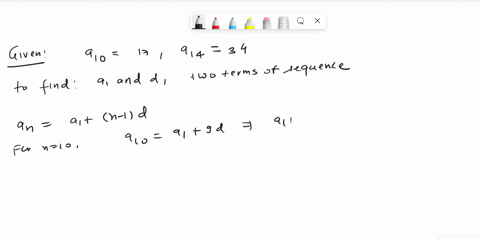 Given: a10 = 17, a14 = 34
to find: a1 and d, two terms of sequence
an = a1 + (n-1) d
For n=10, a10 = a1 + 9d ⇒ a1